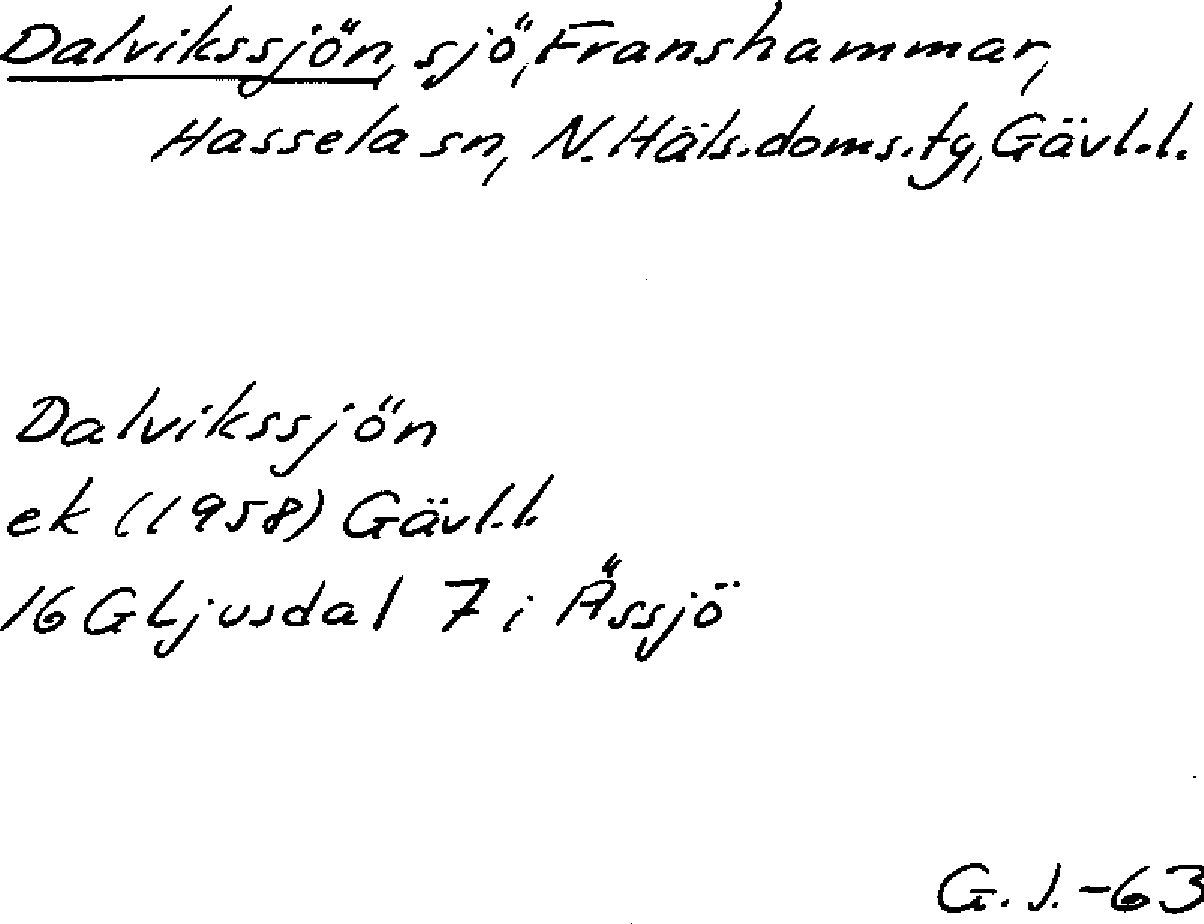 Dalvikssjön, sjö, Franshammar,
Hassela sn, N. Häls. doms. ty, Gävl.l.
Dalvikssjön
ek (1958) Gävl.l.
16 G Ljusdal 7 i Ässjö
G. J. -63